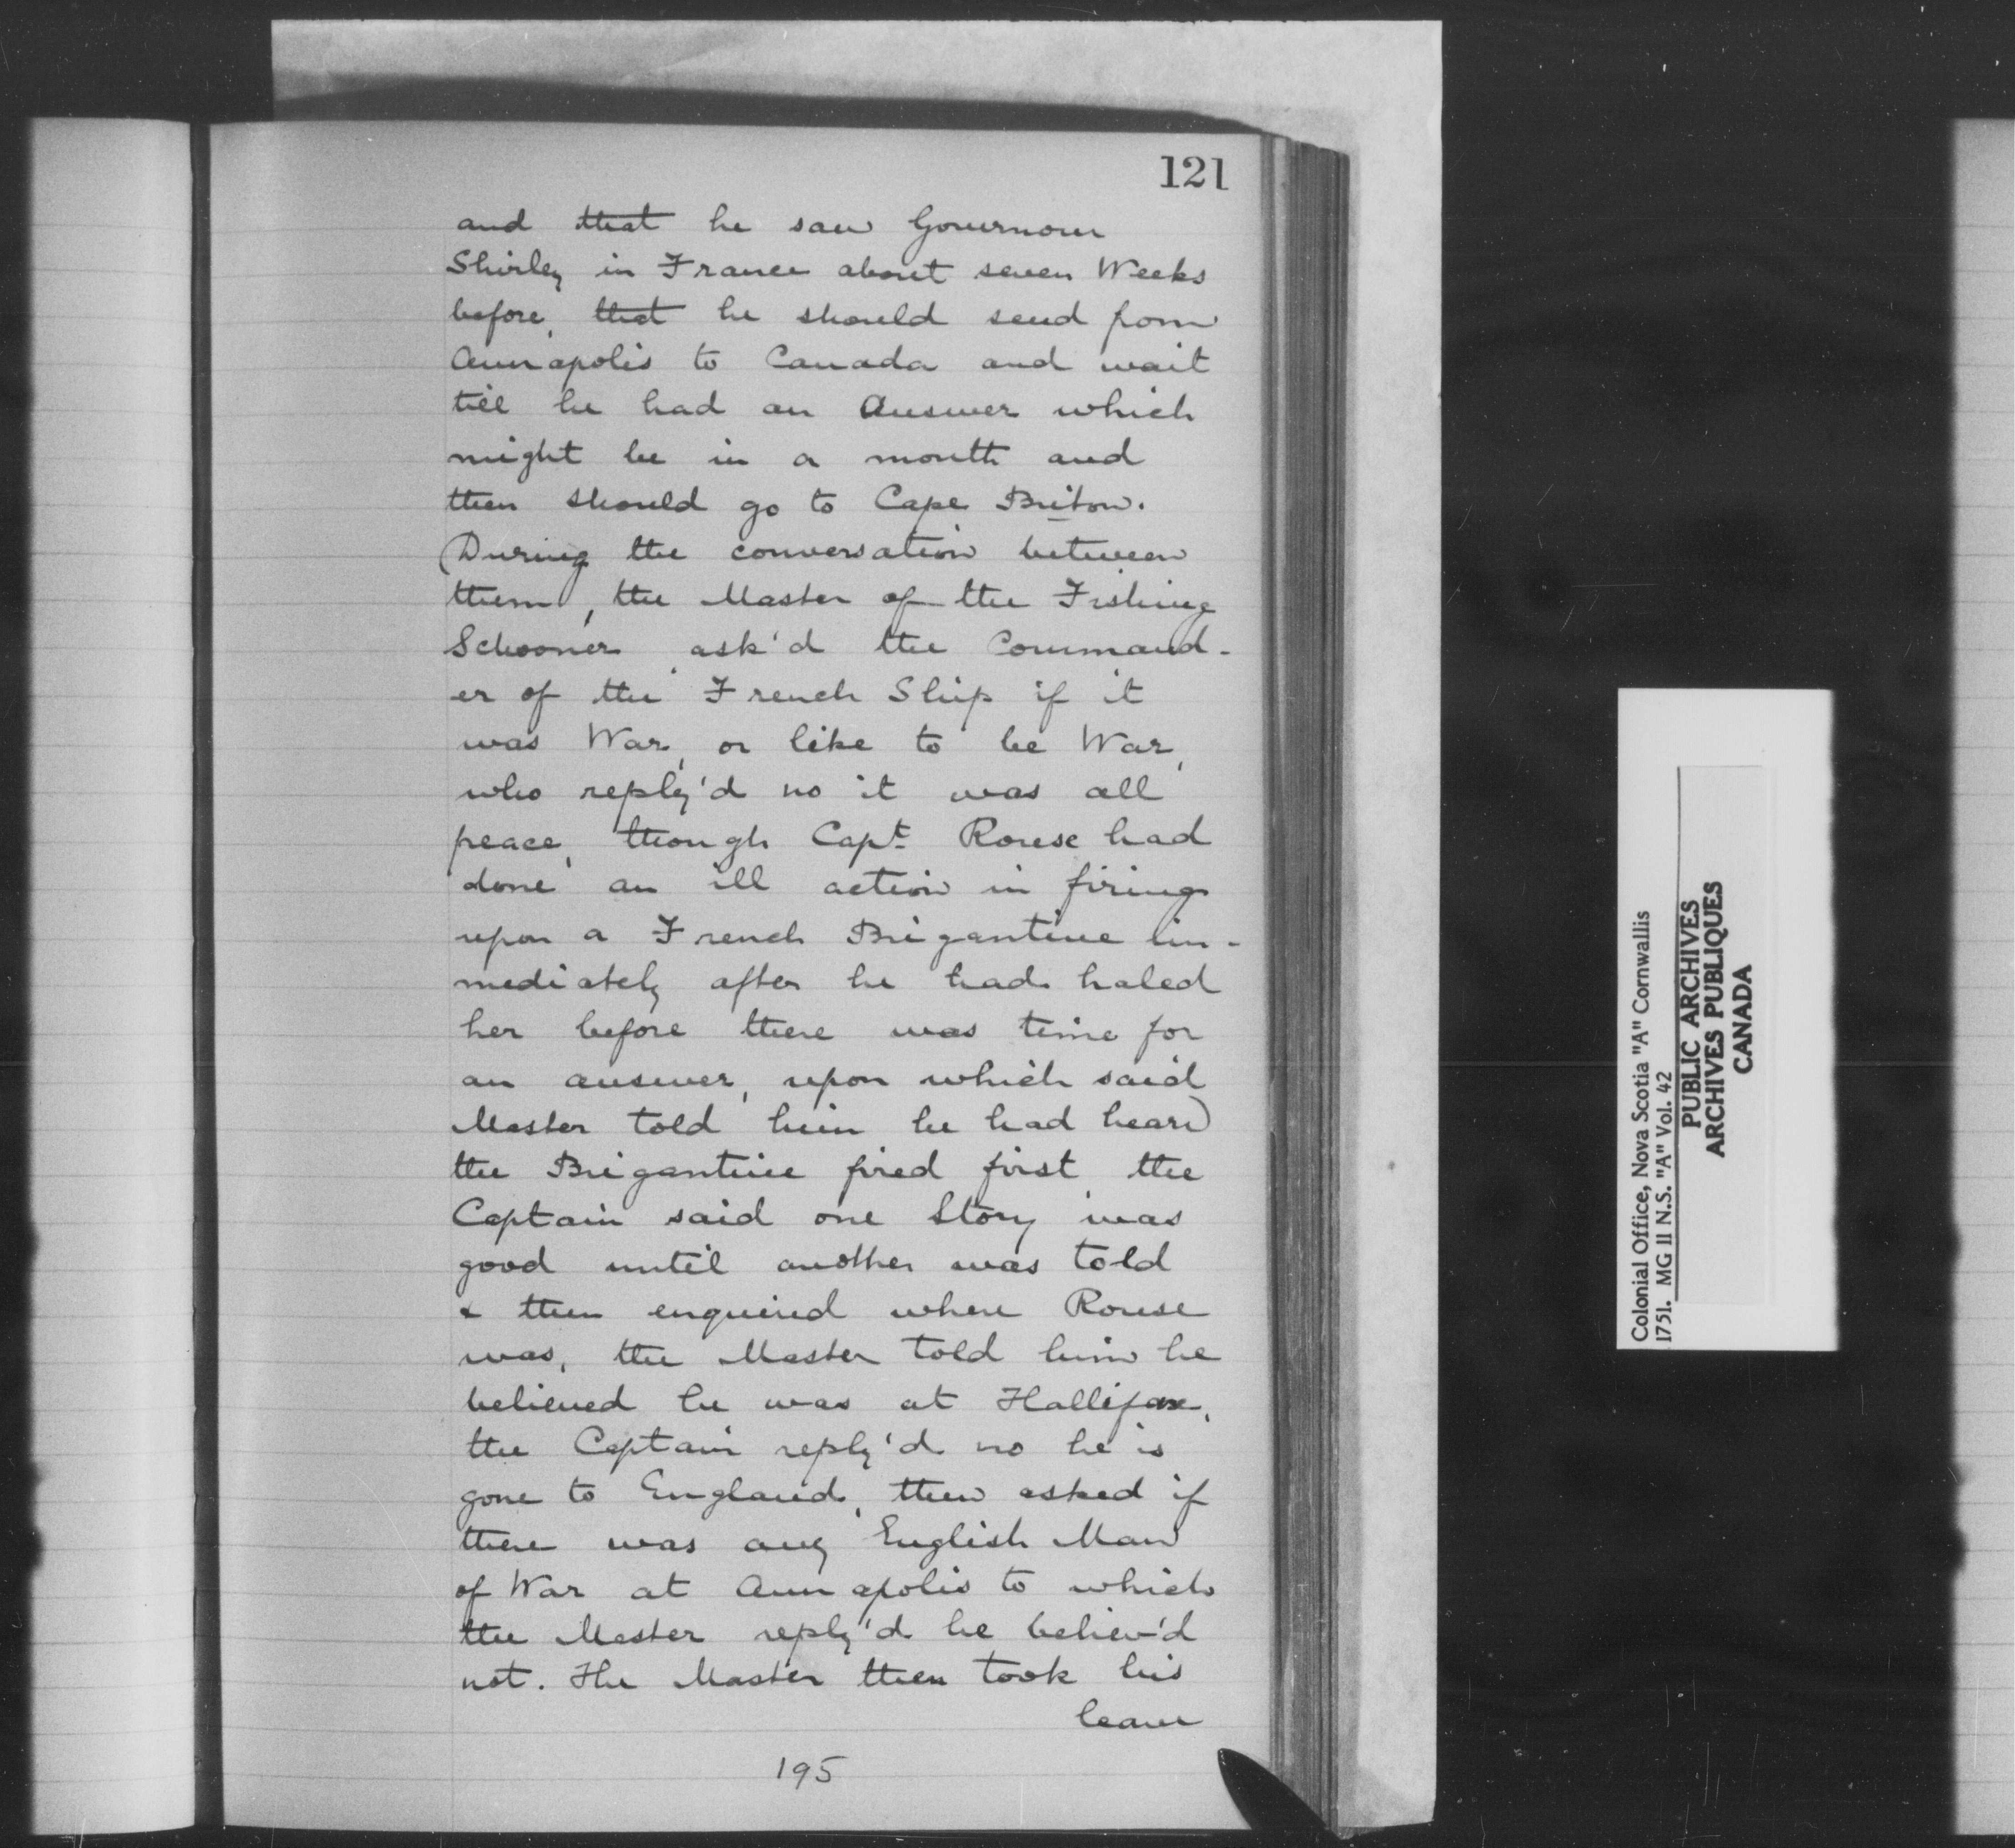 121
and that he saw Governour
Shirley in France about seven Weeks
before, that he should send from
Annapolis to Canada and wait
till he had an Answer which
might be in a month and
then should go to Cape Briton.
During the conversation between
them, the Master of the Fishing
Schooner, ask'd the Command-
er of the French Ship if it
was War, or like to be War,
who reply'd no it was all
peace, though Capt. Rouse had
done an ill action in firing
upon a French Brigantine im-
mediately after he had haled
her before there was time for
an answer, upon which said
Master told him he had heard
the Brigantine fired first, the
Captain said one Story was
good until another was told
& then enquired where Rouse
was, the Master told him he
believed he was at Hallifax,
the Captain reply'd no he is
gone to England, then asked if
there was any English Man
of War at Annapolis to which
the Master reply'd he believ'd
not. The Master then took his
leave
195
Colonial Office, Nova Scotia "A" Cornwallis
1751. MG 11 N.S. "A" Vol. 42
PUBLIC ARCHIVES
ARCHIVES PUBLIQUES
CANADA